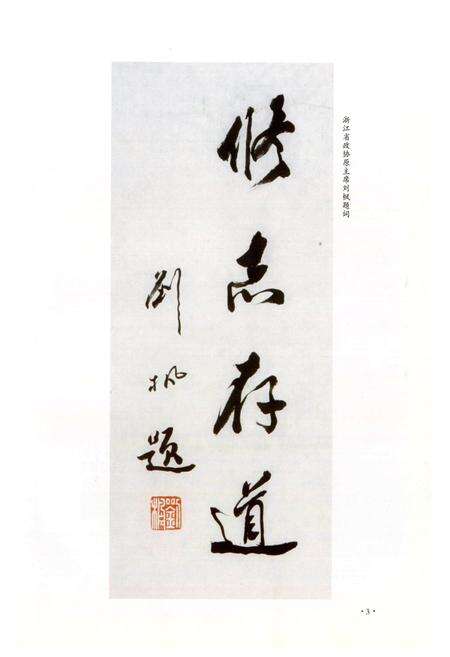 浙江省政协原主席刘枫题词
修志存道
刘枫题
·3·